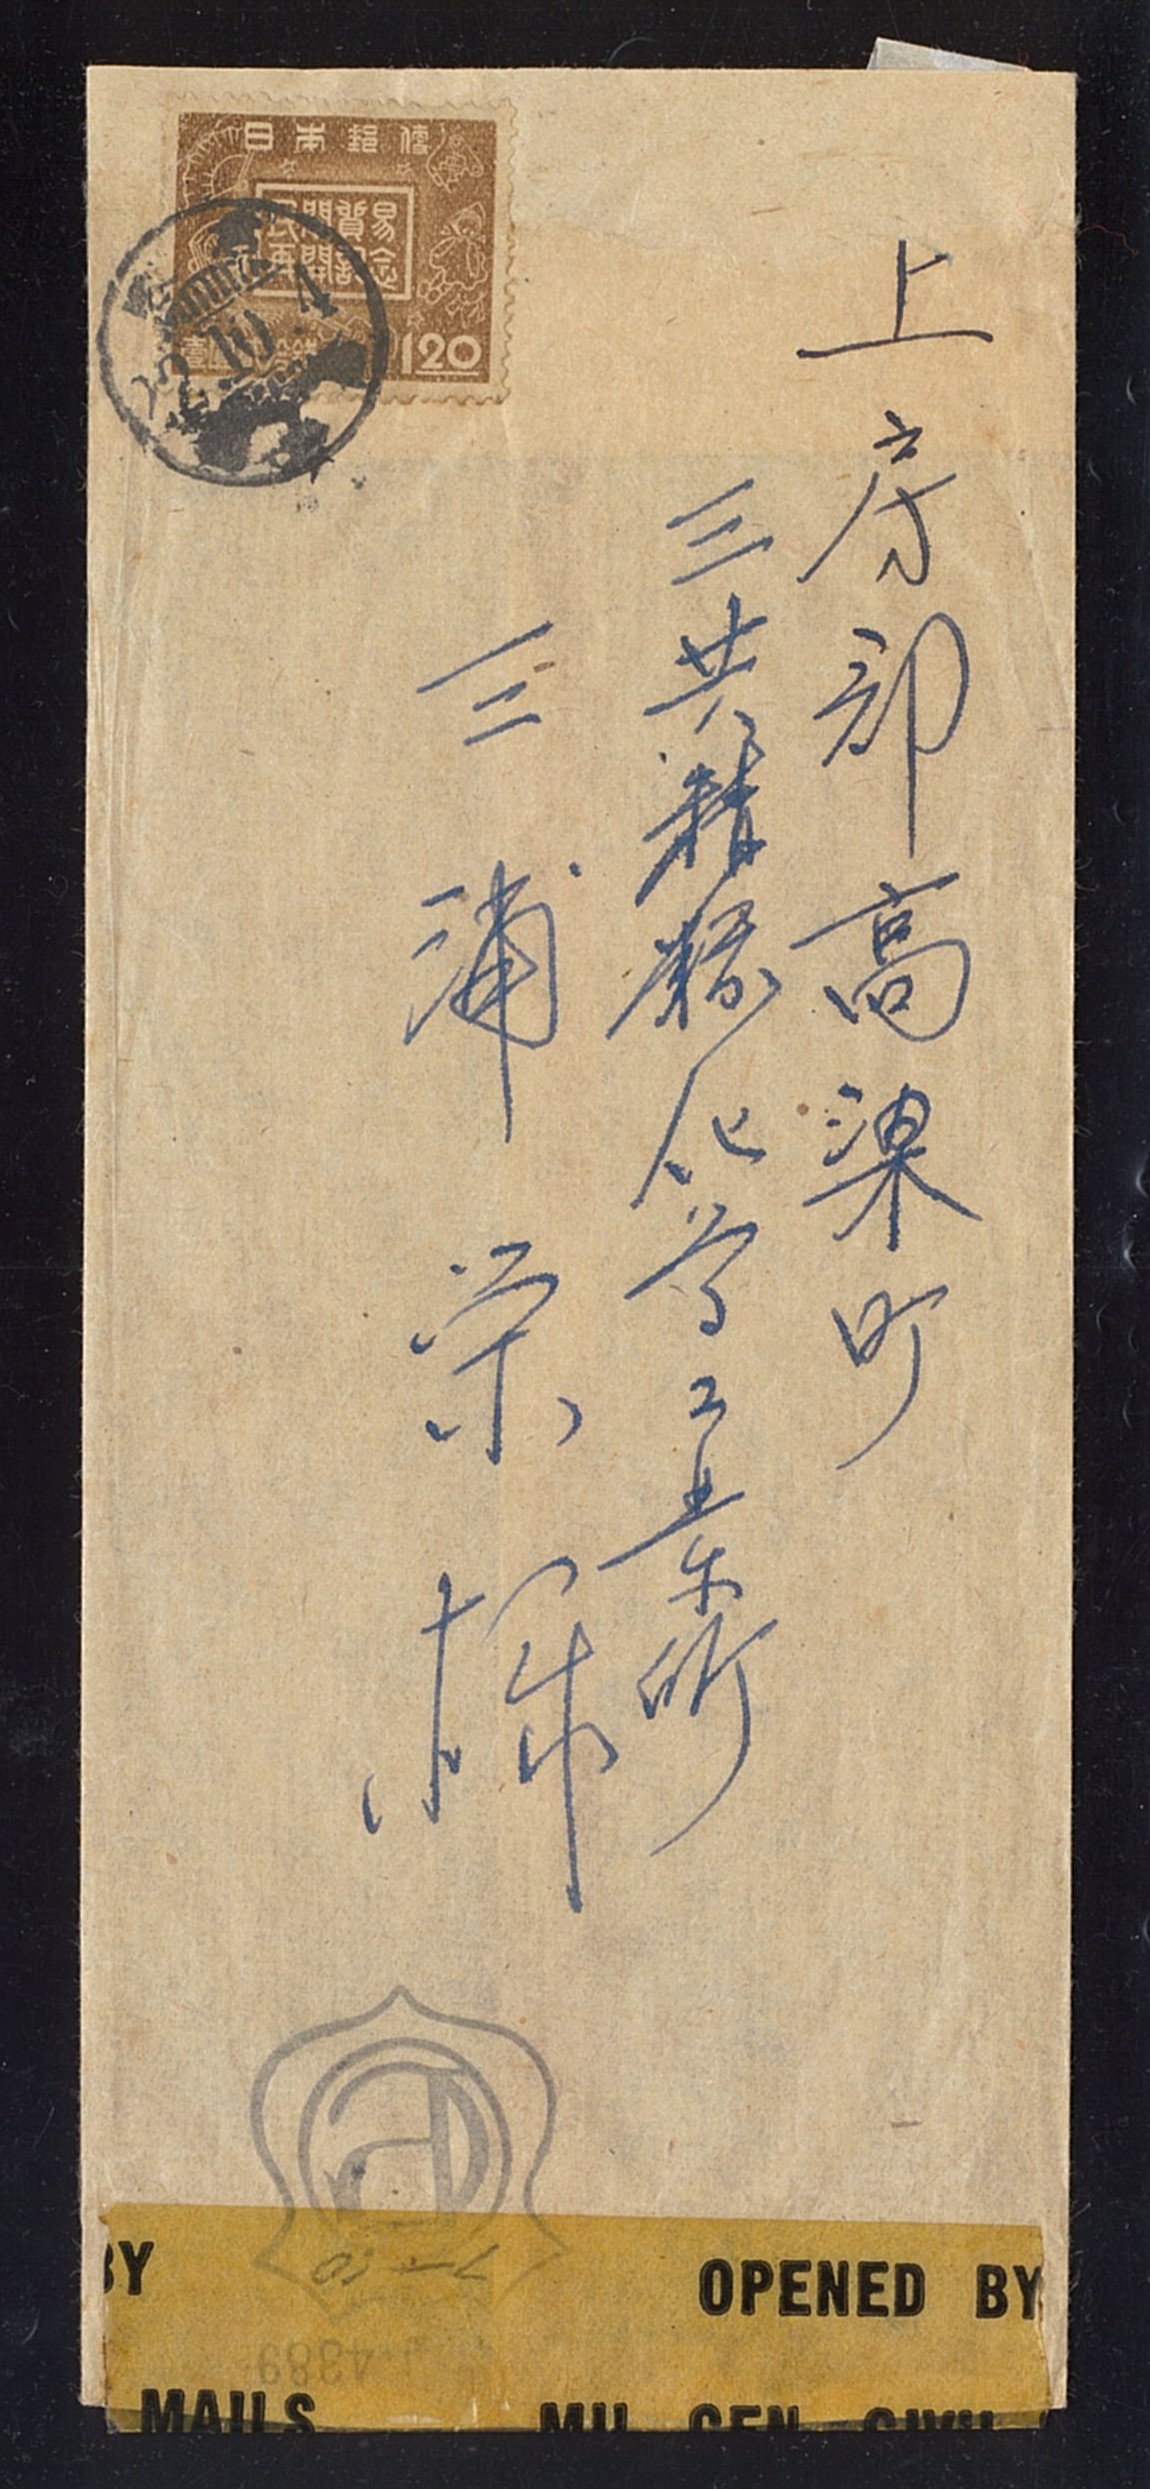 日本郵便
民間貿易
再開記念
120
22.10.4
上房郡高梁町
三共精糖化学工業所
三浦栄輝
BY OPENED BY
4389
MAILS MIL. CEN. CIVIL